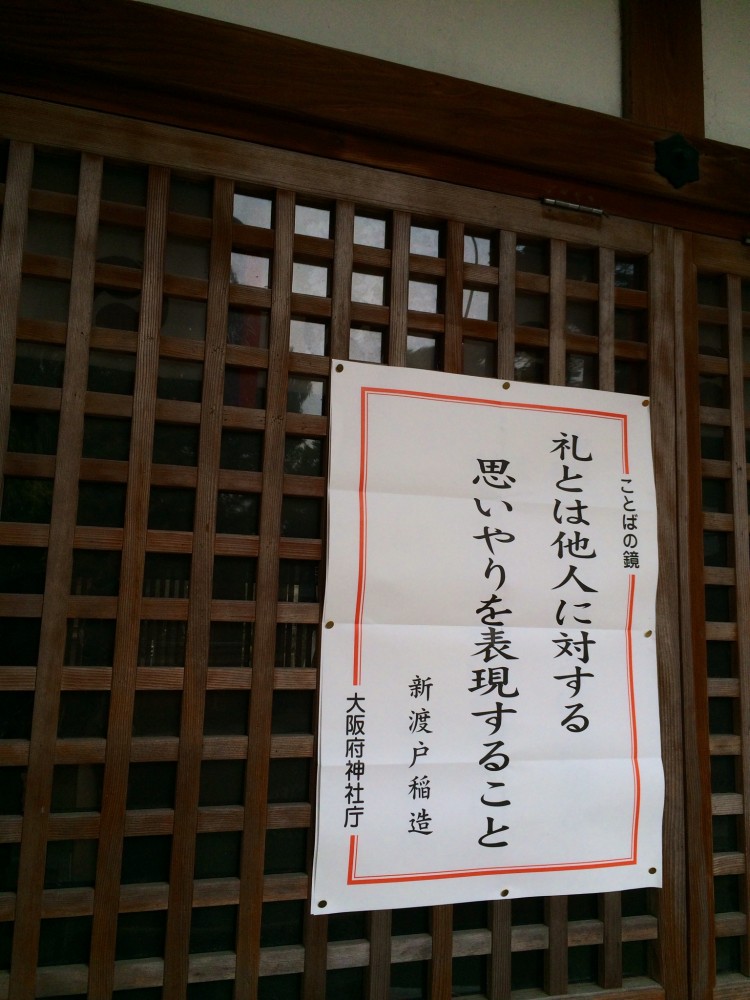 ことばの鏡
礼とは他人に対する
思いやりを表現すること
新渡戸稲造
大阪府神社庁